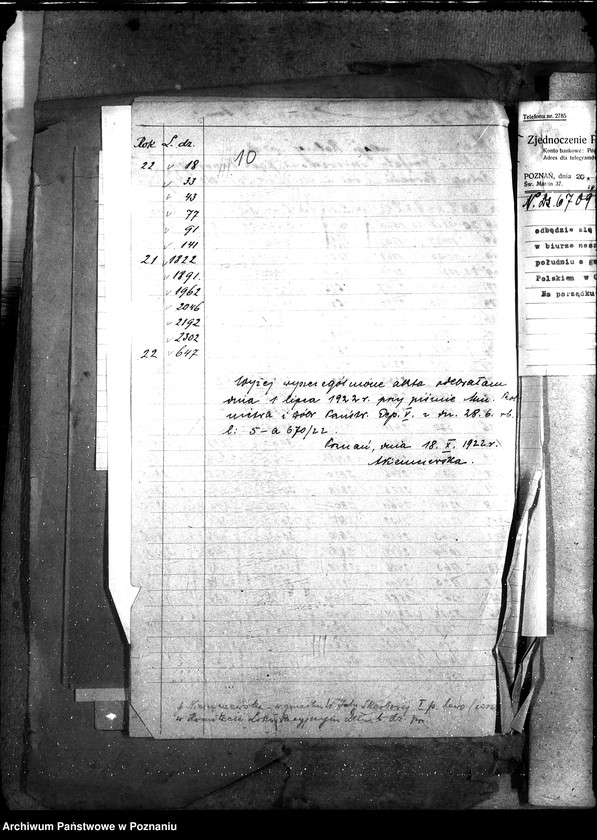 Rok L. dz.
22 v 18
v 33
v 43
v 77
v 91
v 141
21 v 1822
v 1891.
v 1962
v 2046
v 2192
v 2302
22 v 647
10
Wyżej wyszczególnione akta odebrałam
dnia 1 lipca 1922 r. przy piśmie Min. Rol
nictwa i Dóbr Państw. Dep. V. z dn. 28. 6. rb.
l: 5-a 670/22.
Poznań, dnia 18. X. 1922 r.
w gmachu Izby Skarbowej I p. lewo
w
Telefonu nr. 2785
Zjednoczenie P
Konto bankowe:
Adres dla telegramów
POZNAŃ, dnia 20.
Św. Marcin 37.
N. Dz. 6709
odbędzie się
w biurze nasz
południu o go
Polskiem w
Na porządku
Archiwum Państwowe w Poznaniu